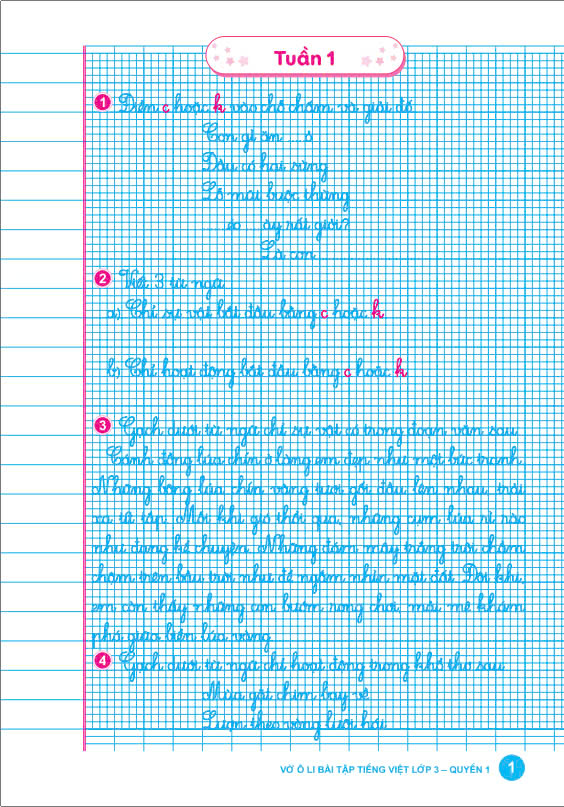 Tuần 1
1 Điền c hoặc k vào chỗ chấm và giải đố
Con gì ăn ....ỏ
Đầu có hai sừng
Lỗ mũi buộc thừng
.....éo .....ày rất giỏi?
Là con
2 Viết 3 từ ngữ
a) Chỉ sự vật bắt đầu bằng c hoặc k
b) Chỉ hoạt động bắt đầu bằng c hoặc k
3 Gạch dưới từ ngữ chỉ sự vật có trong đoạn văn sau
Cánh đồng lúa chín ở làng em đẹp như một bức tranh.
Những bông lúa chín vàng tươi gối đầu lên nhau, trải
xa tít tắp. Mỗi khi gió thổi qua, những cụm lúa rì rào
như đang kể chuyện. Những đám mây trắng trôi chầm
chậm trên bầu trời như để ngắm nhìn mặt đất. Đôi khi,
em còn thấy những con bướm rong chơi, mải mê khám
phá giữa biển lúa vàng.
4 Gạch dưới từ ngữ chỉ hoạt động trong khổ thơ sau
Mùa gặt chim bay về
Lượn theo vòng lưỡi hái
VỞ Ô LI BÀI TẬP TIẾNG VIỆT LỚP 3 – QUYỂN 1 1